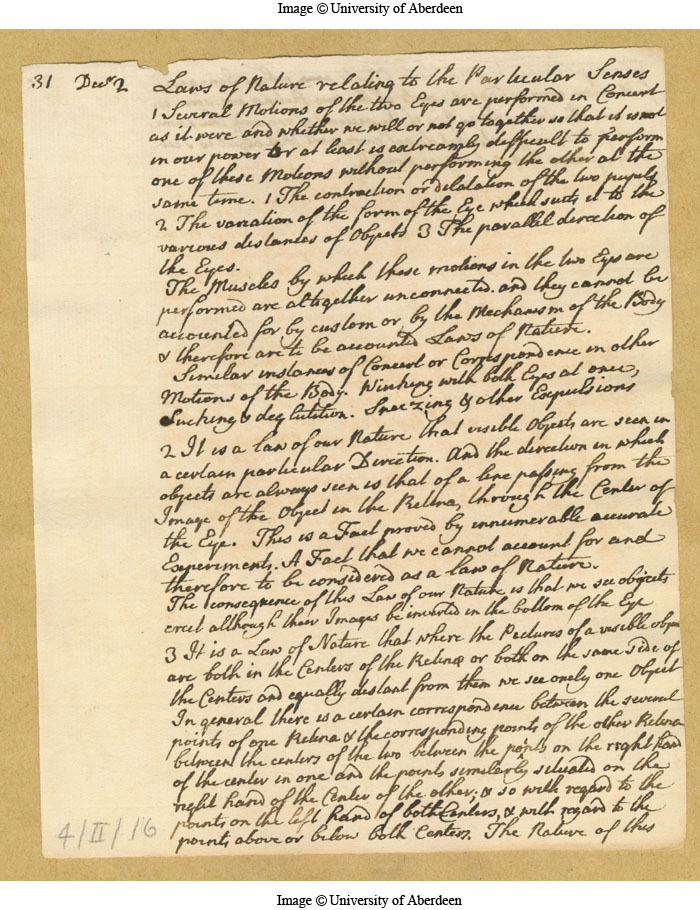 Image © University of Aberdeen
31 Decr 2 Laws of Nature relating to the Particular Senses
1 Several Motions of the two Eyes are performed in Concert
as it were and whether we will or not go together so that it is not
in our power or at least is extreamly difficult to perform
one of these Motions without performing the other at the
same time. 1 The contraction or dilatation of the two pupils
2 The variation of the form of the Eye which suits it to the
various distances of Objects 3 The parallel direction of
the Eyes.
The Muscles by which these motions in the two Eyes are
performed are altogether unconnected. and they cannot be
accounted for by custom or by the Mechanism of the Body
& therefore are to be accounted Laws of Nature.
Similar instances of Concert or Correspondence in other
Motions of the Body. Winking with both Eyes at once,
Sucking & deglutition. Sneezing & other Expulsions
2 It is a law of our Nature that visible Objects are seen in
a certain particular Direction. And the direction in which
objects are always seen is that of a line passing from the
Image of the Object in the Retina, through the Center of
the Eye. This is a Fact proved by innumerable accurate
Experiments. A Fact that we cannot account for and
therefore to be considered as a law of Nature.
The consequence of this Law of our Nature is that we see objects
erect although their Images be inverted in the bottom of the Eye
3 It is a Law of Nature that where the Pictures of a visible object
are both in the Centers of the Retinæ or both on the same side of
the Centers and equally distant from them we see onely one Object
In general there is a certain correspondence between the several
points of one Retina & the corresponding points of the other Retina
between the centers of the two between the points on the right hand
of the center in one and the points similarly situated on the
right hand of the Center of the other, & so with regard to the
points on the left hand of both Centers, & with regard to the
points above or below both Centers. The Nature of this
4/II/16
Image © University of Aberdeen